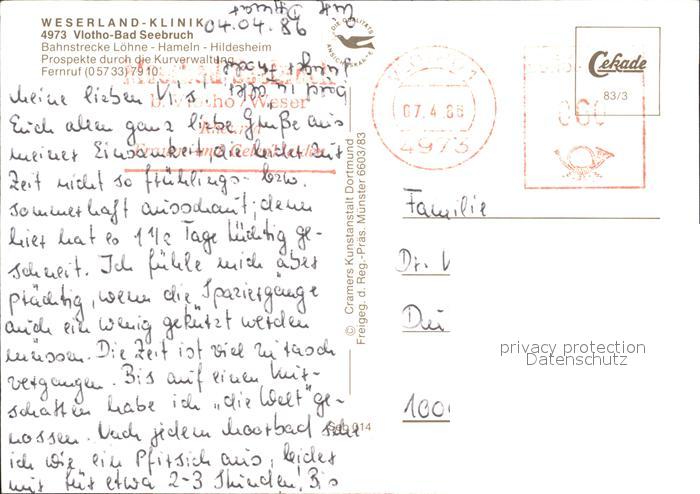 WESERLAND-KLINIK
4973 Vlotho-Bad Seebruch
Bahnstrecke Löhne - Hameln - Hildesheim
Prospekte durch die Kurverwaltung
Fernruf (05733) 7910
04.04.86
DIE QUALITÄTS
ANSICHTSKARTE
Meine lieben V
Euch allen ganz liebe Grüße aus
meiner Einsamkeit die leider zur
Zeit nicht so frühlings- bzw.
sommerhaft ausschaut, denn
hier hat es 1 1/2 Tage tüchtig ge-
schneit. Ich fühle mich aber
prächtig, wenn die Spaziergänge
auch ein wenig gekürzt werden
müssen. Die Zeit ist viel zu rasch
vergangen. Bis auf einen Mit-
schatten habe ich "die Welt" ge-
nossen. Nach jedem Moorbad sehe
ich wie ein Pfirsich aus, leider
nur für etwa 2-3 Stunden! Bis
bald in alter
b. Vlotho/Weser
07.4.86
4973
060
Cekade
83/3
© Cramers Kunstanstalt Dortmund
Freigeg. d. Reg.-Präs. Münster 6603/83
See 014
Familie
Dr. V
1000
privacy protection
Datenschutz